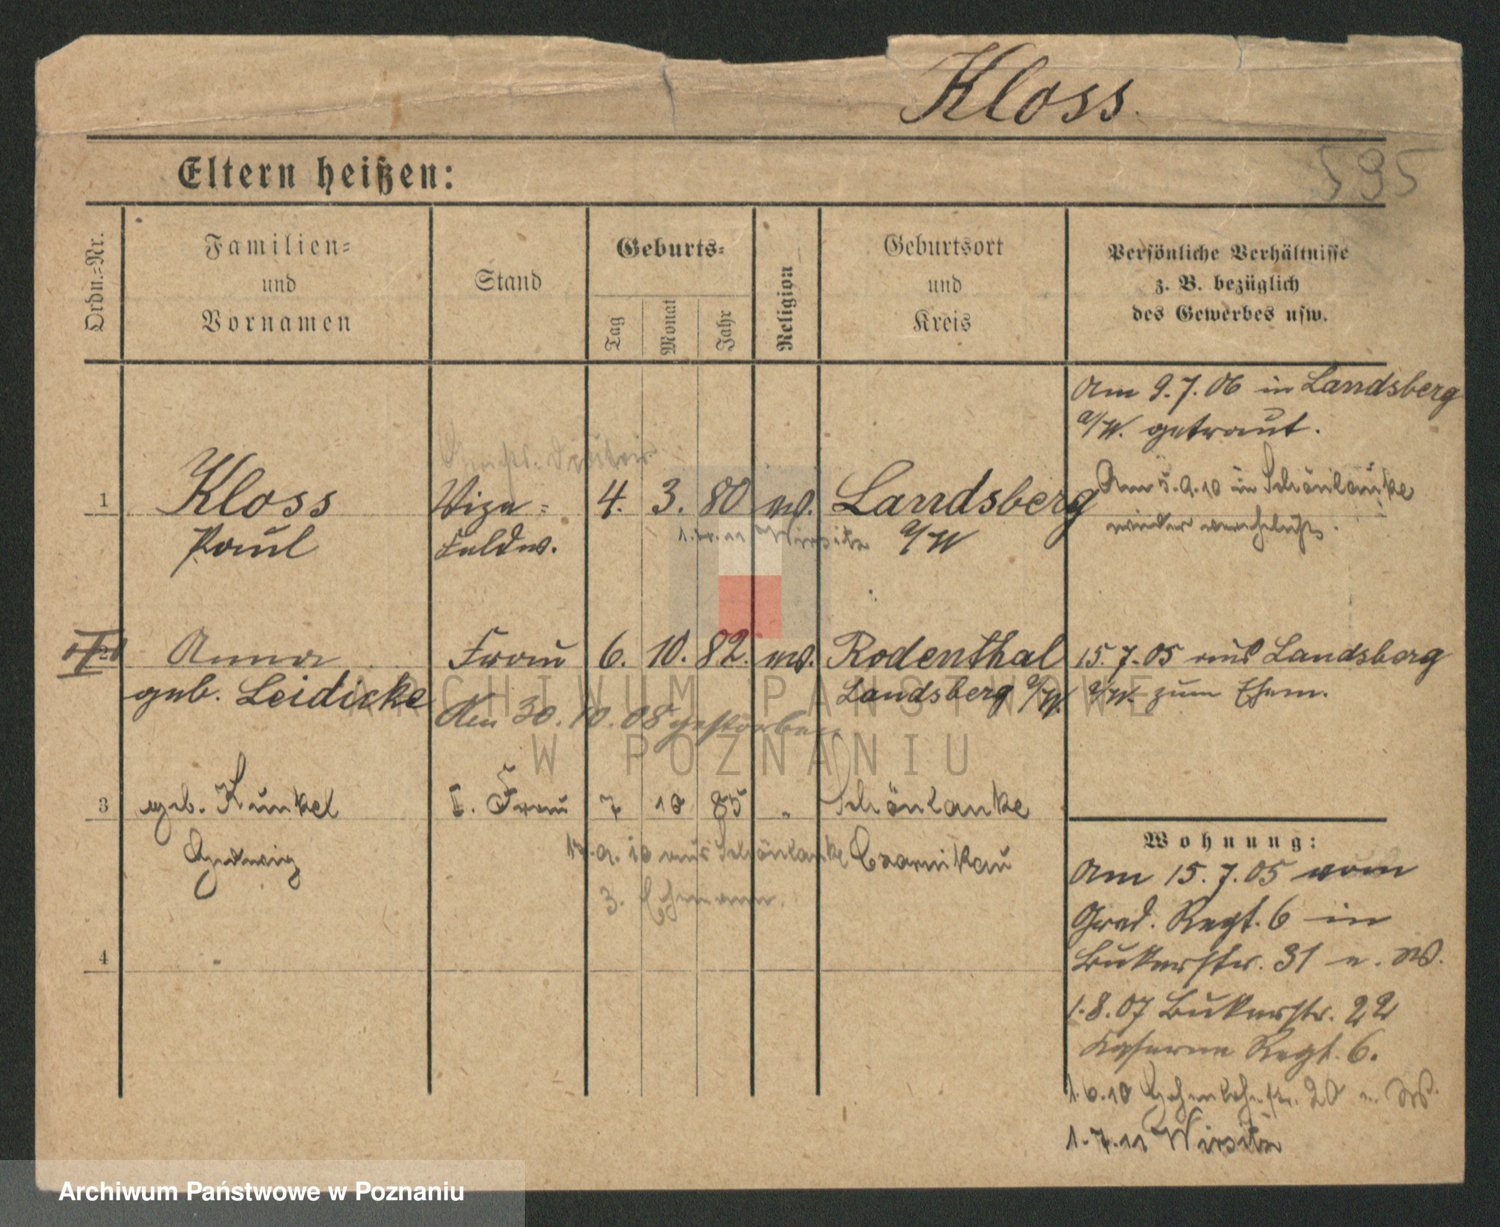 Kloss.
Eltern heißen:
595
Ordn.-Nr.
Familien-
und
Vornamen
Stand
Geburts-
Tag
Monat
Jahr
Religion
Geburtsort
und
Kreis
Persönliche Verhältnisse
z. B. bezüglich
des Gewerbes usw.
Am 9.7.06 in Landsberg
a/W. getraut.
1
Kloss
Paul
Vize-
Feldw.
4. 3. 80 ev.
1. 11 Wirsitz
Landsberg
a/W
Am 5.9.10 in Schönlanke
wieder verehelicht.
Anna
geb. Leidicke
Frau 6. 10. 82. ev.
Am 30.10.08 gestorben
Rodenthal
Landsberg a/W.
15.7.05 aus Landsberg
a/W. zum Ehem.
3
geb. Kunkel
Hedwig
Frau 7 10 85 "
9. 10 aus Schönlanke
z. Ehemann.
Schönlanke
Czarnikau
4
Wohnung:
Am 15.7.05 vom
Grad. Regt. 6 in
Bukerstr. 31 n. W.
1.8.07 Bukerstr. 22
Kaserne Regt. 6.
1.6.10 Hohenlohestr. 20 n. W.
1.7.11 Wirsitz
ARCHIWUM PAŃSTWOWE
W POZNANIU
Archiwum Państwowe w Poznaniu